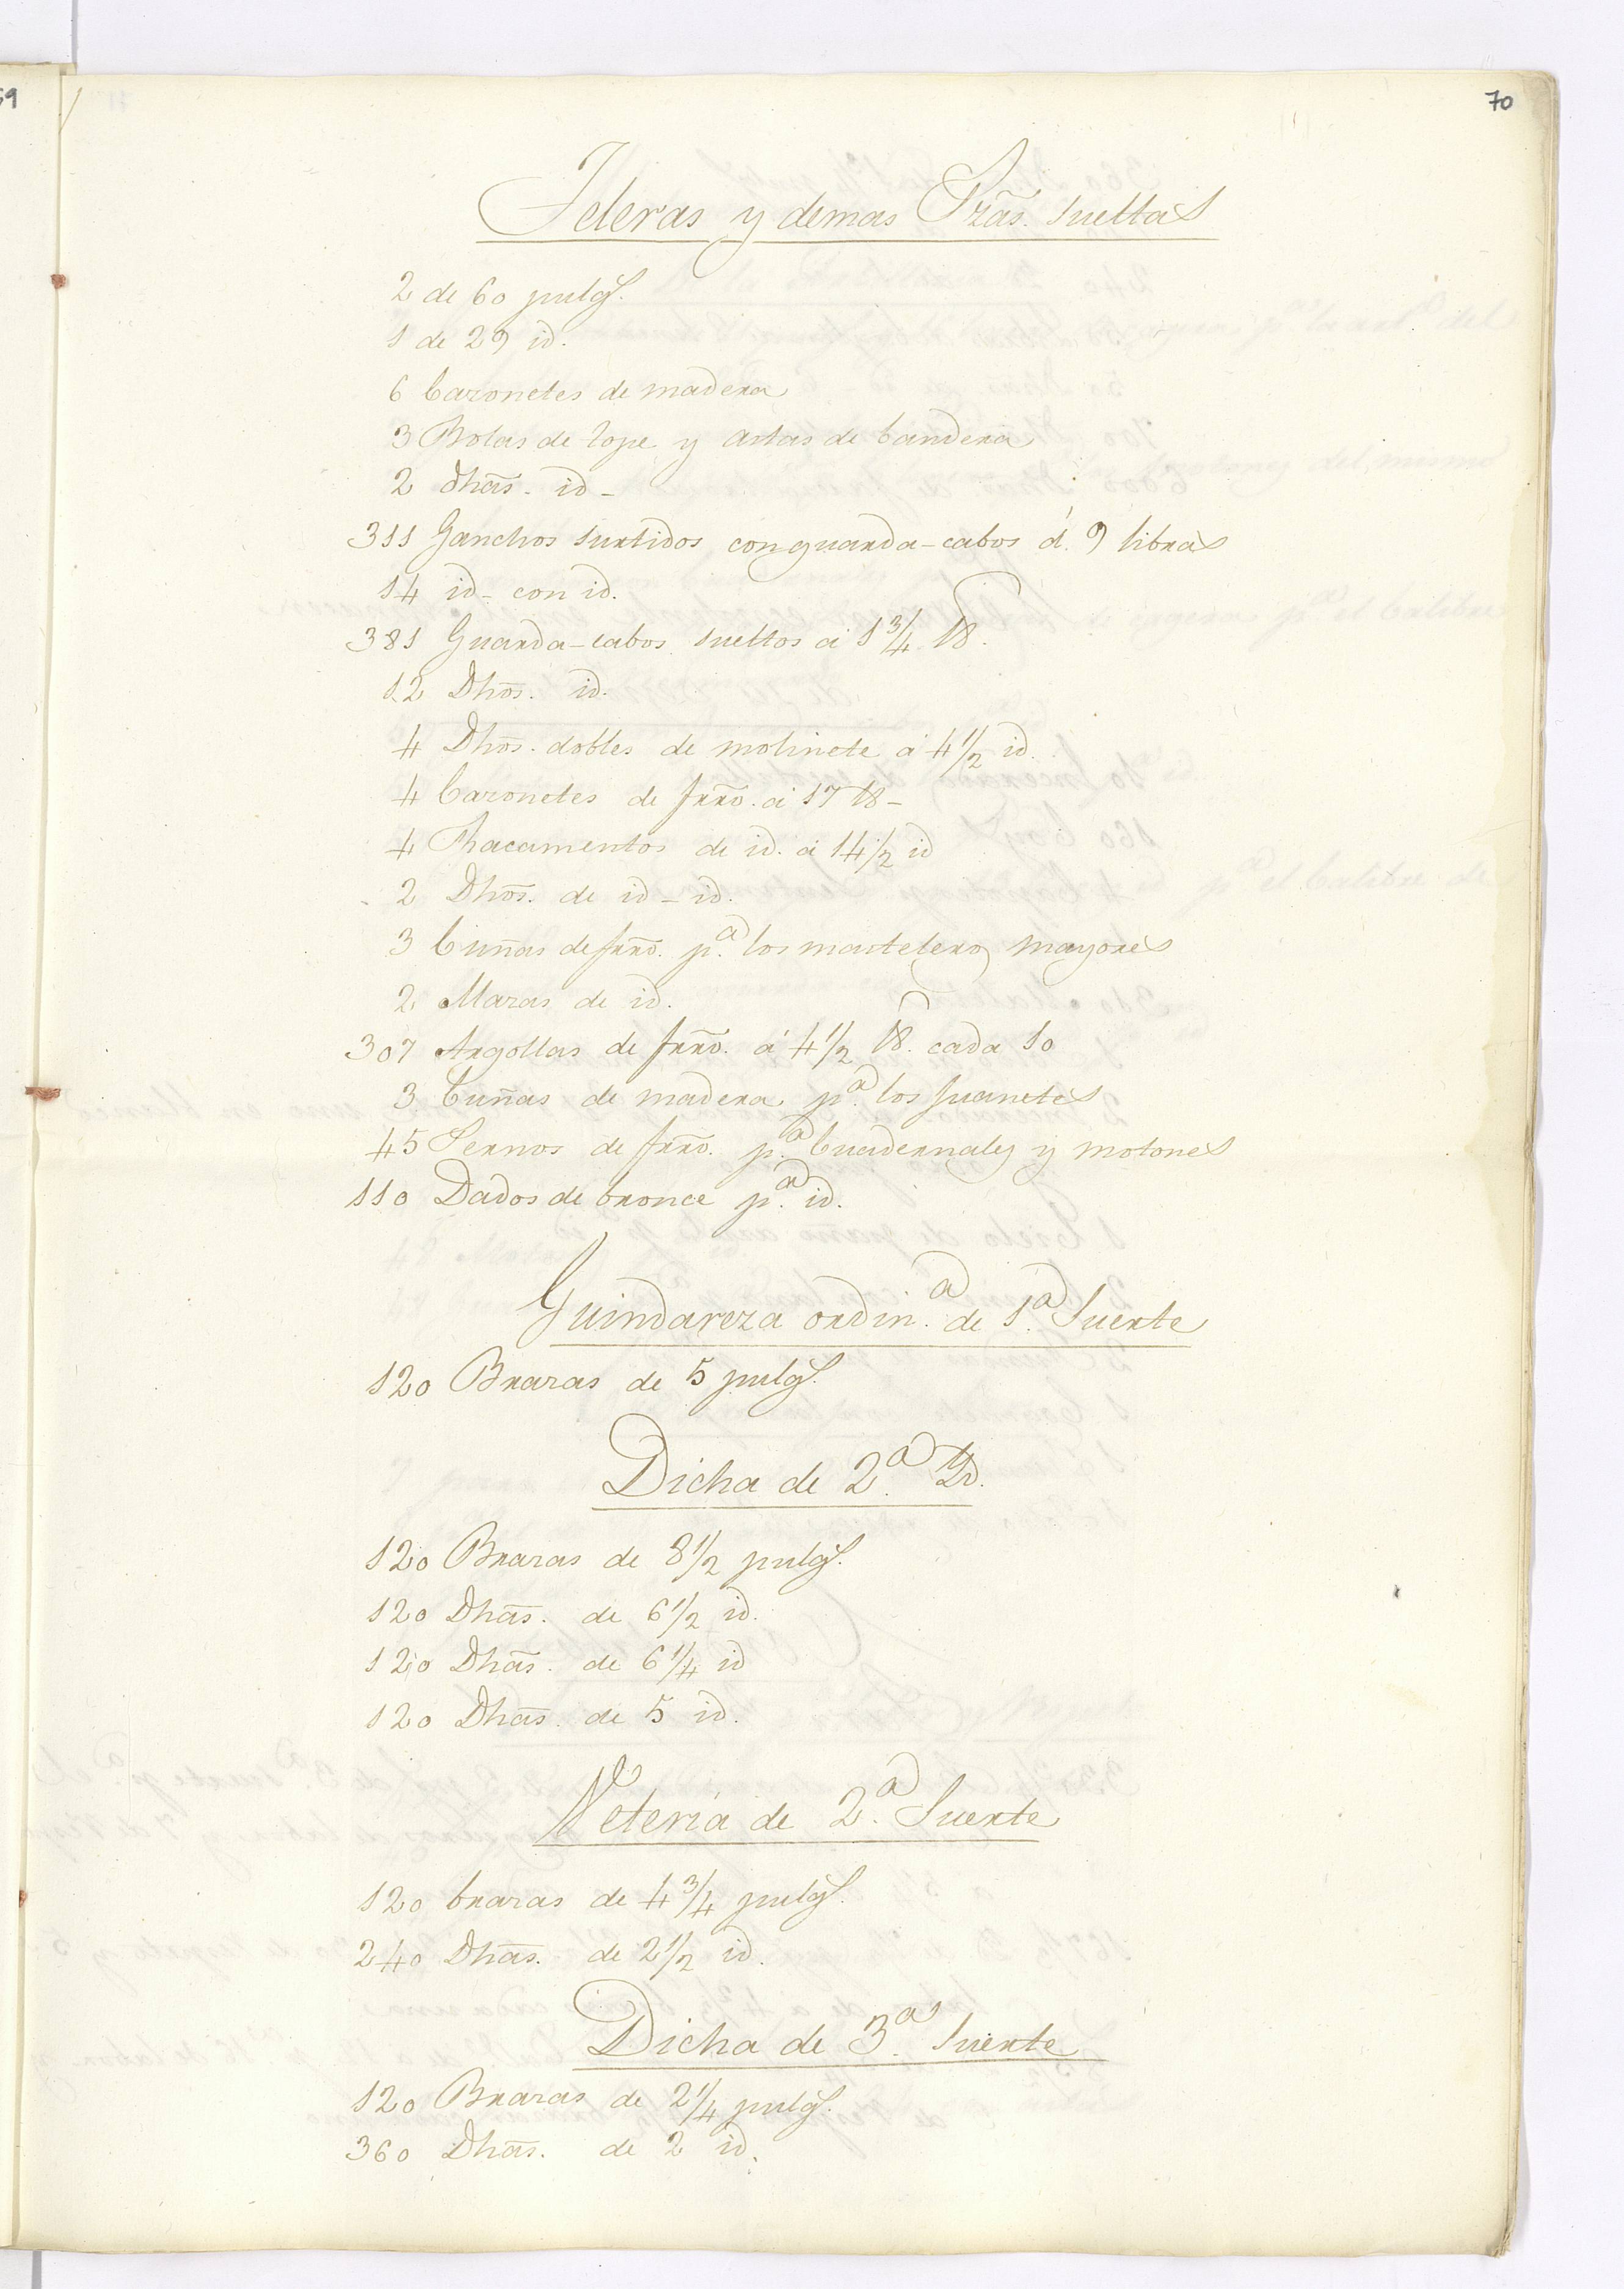 69
70
Teleras y demas Pzãs. sueltas
2 de 60 pulgs.
1 de 29 id.
6 baronetes de madera
3 Bolas de tope y astas de bandera
2 dhãs. id-
311 Ganchos surtidos con guarda-cabos á 9 libras
14 id- con id.
381 Guarda-cabos sueltos á 1 3/4 lB.
12 Dhõs. id.
4 Dhõs. dobles de molinete á 4 1/2 id.
4 baronetes de frrõ. á 17 lB-
4 Racamentos de id. á 14 1/2 id
2 Dhõs. de id- id.
3 Cuñas de frrõ. pa. los masteleros mayores
2 Mazas de id.
307 Argollas de frrõ. á 4 1/2 lB. cada 10
3 Cuñas de madera pa. los juanetes
45 Pernos de frrõ. pa. Cuadernales y motones
110 Dados de bronce pa. id.
Guindareza ordin.a de 1.a Suerte
120 Brazas de 5 pulgs.
Dicha de 2.a Yd.
120 Brazas de 8 1/2 pulgs.
120 Dhãs. de 6 1/2 id.
120 Dhãs. de 6 1/4 id
120 Dhãs. de 5 id.
Vetería de 2.a Suerte
120 brazas de 4 3/4 pulgs.
240 Dhãs. de 2 1/2 id.
Dicha de 3.a Suerte
120 Brazas de 2 1/4 pulgs.
360 Dhãs. de 2 id.